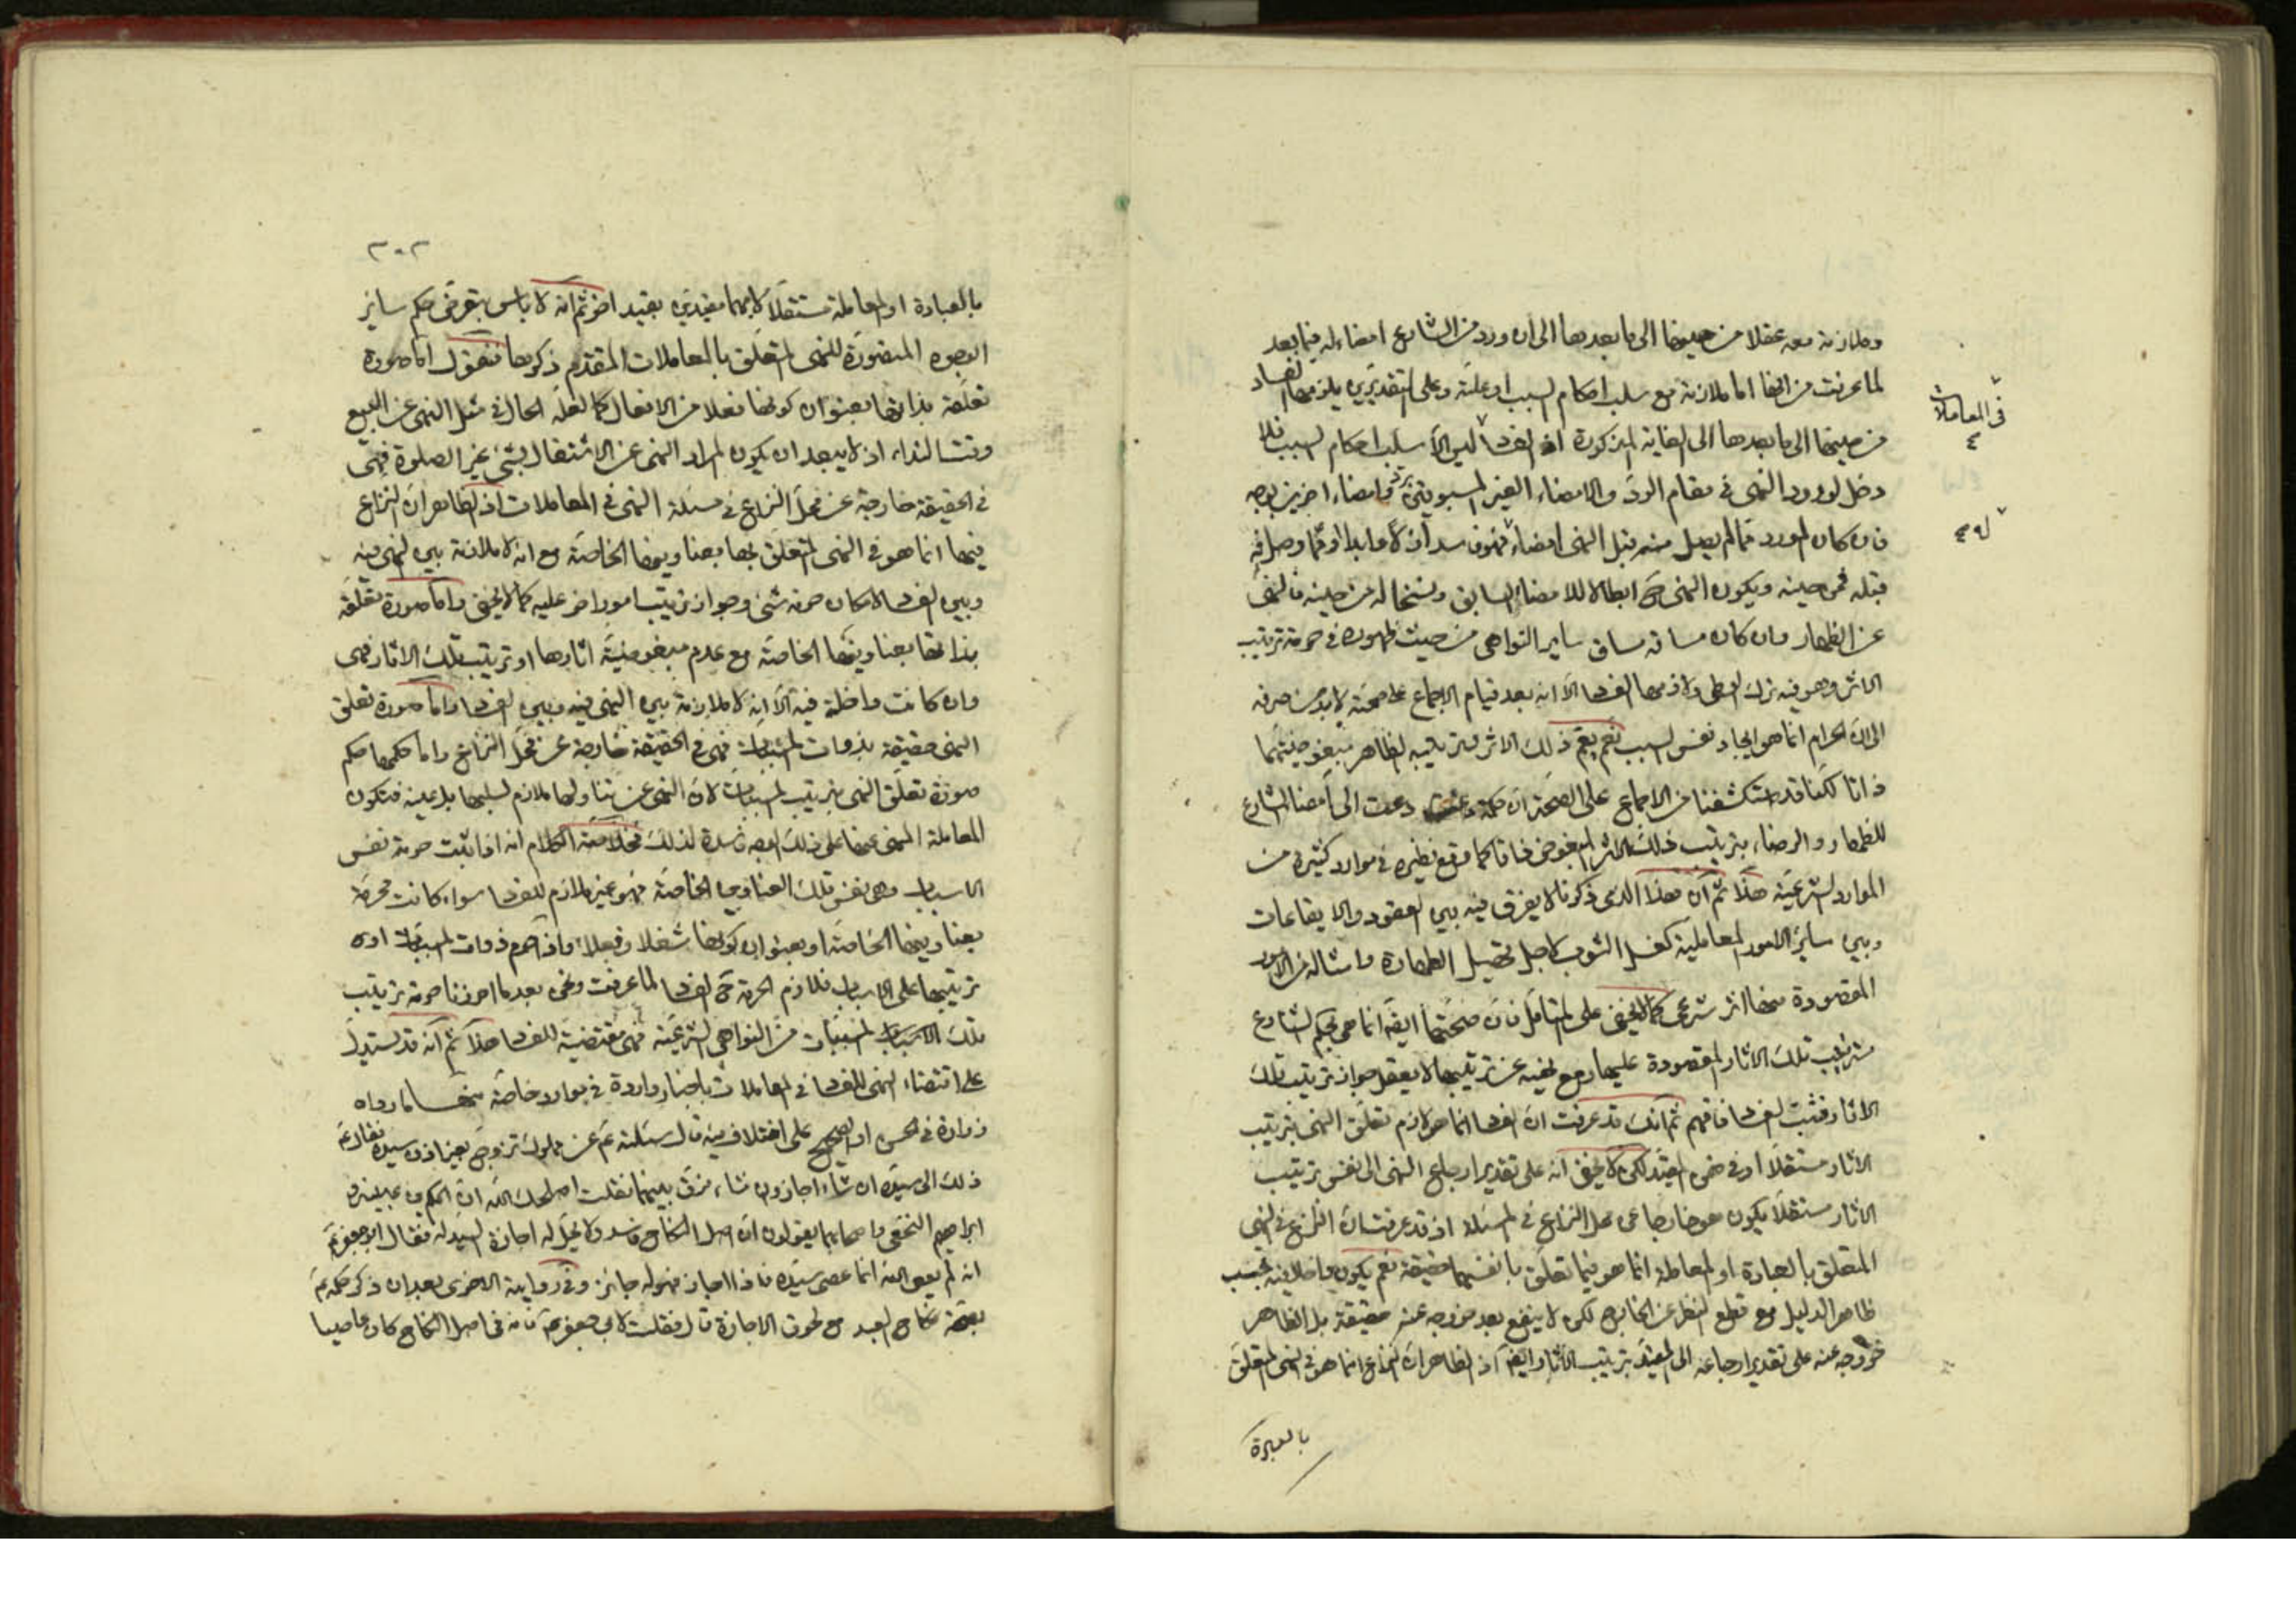 وملازمة معه عقلا من حينها الى ما بعدها الى ان ورد من الشارع امضاء له فيما بعد
لما عرفت من انها اما ملازمة مع سلب احكام السبب او علته وعلى التقديرين يلزمها الفساد
من حينها الى ما بعدها الى الغاية المذكورة اذ الفساد ليس الا سلب احكام السبب فلا
دخل لورود النهى فى مقام الرد والامضاء الغير المسبوقين برد وامضاء اخرين بوجه
فان كان المورد مما لم يصل منه قبل النهى امضاء فهو فاسد اذ لا وابدا او مما وصل فيه
قبله فمن حينه ويكون النهى ح ابطالا للامضاء السابق ونسخا له من حينه فالنهى
عن الظهار وان كان مساقه مساق ساير النواهى من حيث ظهوره فى حرمة ترتيب
الاثر وهو فيه ترك الوطى ولازمها الفساد الا انه بعد قيام الاجماع على صحته لا بد من صرفه
الى ان الحرام انما هو ايجاد نفس السبب نعم يعم ذلك الاثر وترتيبه الظاهر مبغوضيتهما
ذاتا لكنا قد استكشفنا من الاجماع على الصحة ان حكمة دعت الى امضا الشارع
للظهار والرضاء بترتيب ذلك الاثر المبغوض ذاتا كما وقع نظيره فى موارد كثيرة من
الموارد الشرعية هذا ثم ان هذا الذى ذكرنا لا يفرق فيه بين العقود والايقاعات
وبين ساير الامور المعاملية كغسل الثوب لاجل تحصيل الطهارة وامثاله من الامور
المقصودة منها اثر شرعى كما لا يخفى على المتامل فان صحتها ايضا انما هى بحكم الشارع
بترتيب تلك الاثار المقصودة عليها ومع نهيه عن ترتيبها لا يعقل جواز ترتيب تلك
الاثار فثبت الفساد فافهم ثم انك قد عرفت ان الفساد انما هو لازم تعلق النهى بترتيب
الاثار مستقلا او فى ضمن المقيد لكن لا يخفى انه على تقدير ارجاع النهى الى نفس ترتيب
الاثار مستقلا يكون هو خارجا عن محل النزاع فى المسئلة اذ قد عرفت ان النزاع فى النهى
المتعلق بالعبادة او المعاملة انما هو فيما تعلق بانفسهما حقيقة نعم يكون داخلا فيه بحسب
ظاهر الدليل مع قطع النظر عن الخارج لكن لا ينفع بعد خروجه عنه حقيقة بل الظاهر
خروجه عنه على تقدير ارجاعه الى المقيد بترتيب الاثار ايضا اذ الظاهر ان النزاع انما هو فى النهى المتعلق
بالعبادة
فى المعاملات
٣٠٢
بالعبادة او المعاملة مستقلا لا بهما مقيدين بقيد اخر ثم انه لا باس بتعرض حكم ساير
الوجوه المتصورة للنهى المتعلق بالمعاملات المتقدم ذكرها فنقول اما صورة
تعلقه بذاتها بعنوان كونها فعلا من الافعال كما لعله الحال فى مثل النهى عن البيع
وقت النداء اذ لا يبعد ان يكون المراد النهى عن الاشتغال بشئ غير الصلوة فهى
فى الحقيقة خارجة عن محل النزاع فى مسئلة النهى فى المعاملات اذ الظاهر ان النزاع
فيها انما هو فى النهى المتعلق بها بعناوينها الخاصة مع انه لا ملازمة بين النهى فيه
وبين الفساد لامكان حرمة شئ وجواز ترتيب امور اخر عليه كما لا يخفى واما صورة تعلقه
بذاتها بعناوينها الخاصة مع عدم مبغوضية اثارها او ترتيب تلك الاثار فهى
وان كانت داخلة فيه الا انه لا ملازمة بين النهى فيه وبين الفساد واما صورة تعلق
النهى حقيقة بذوات المسببات فهى فى الحقيقة خارجة عن محل النزاع واما حكمها حكم
صورة تعلق النهى بترتيب المسببات لان النهى عن تناولها ملازم لسلبها بل عينه فتكون
المعاملة المنهى عنها على ذلك الوجه فاسدة لذلك فخلاصة الكلام انه اذا ثبت حرمة نفس
الاسباب وهى نفس تلك العناوين الخاصة فهو غير ملازم للفساد سواء كانت محرمة
بعناوينها الخاصة او بعنوان كونها شغلا وفعلا واذا حرم ذوات المسببات او
ترتيبها على الاسباب فلازم الحرمة ح الفساد لما عرفت ونحن بعد ما احرزنا حرمة ترتيب
تلك المسببات من النواهى الشرعية فهى مقتضية للفساد هذا ثم انه قد يستدل
على اقتضاء النهى للفساد فى المعاملات باخبار واردة فى موارد خاصة منها ما رواه
زرارة فى الحسن او الصحيح على اختلاف فيه قال سئلته عن مملوك تزوج بغير اذن سيده فقال ع
ذلك الى سيده ان شاء اجاز وان شاء فرق بينهما فقلت اصلحك الله ان الحكم بن عيينة و
ابراهيم النخعى واصحابهما يقولون ان اصل النكاح فاسد ولا يحل له اجازة السيد له فقال ابو جعفر ع
انه لم يعص الله انما عصى سيده فاذا اجاز فهو له جائز وفى رواية الاخرى بعد ان ذكر حكمه ع
بصحة نكاح العبد مع لحوق الاجازة قال فقلت لابى جعفر ع فانه فى اصل النكاح كان عاصيا